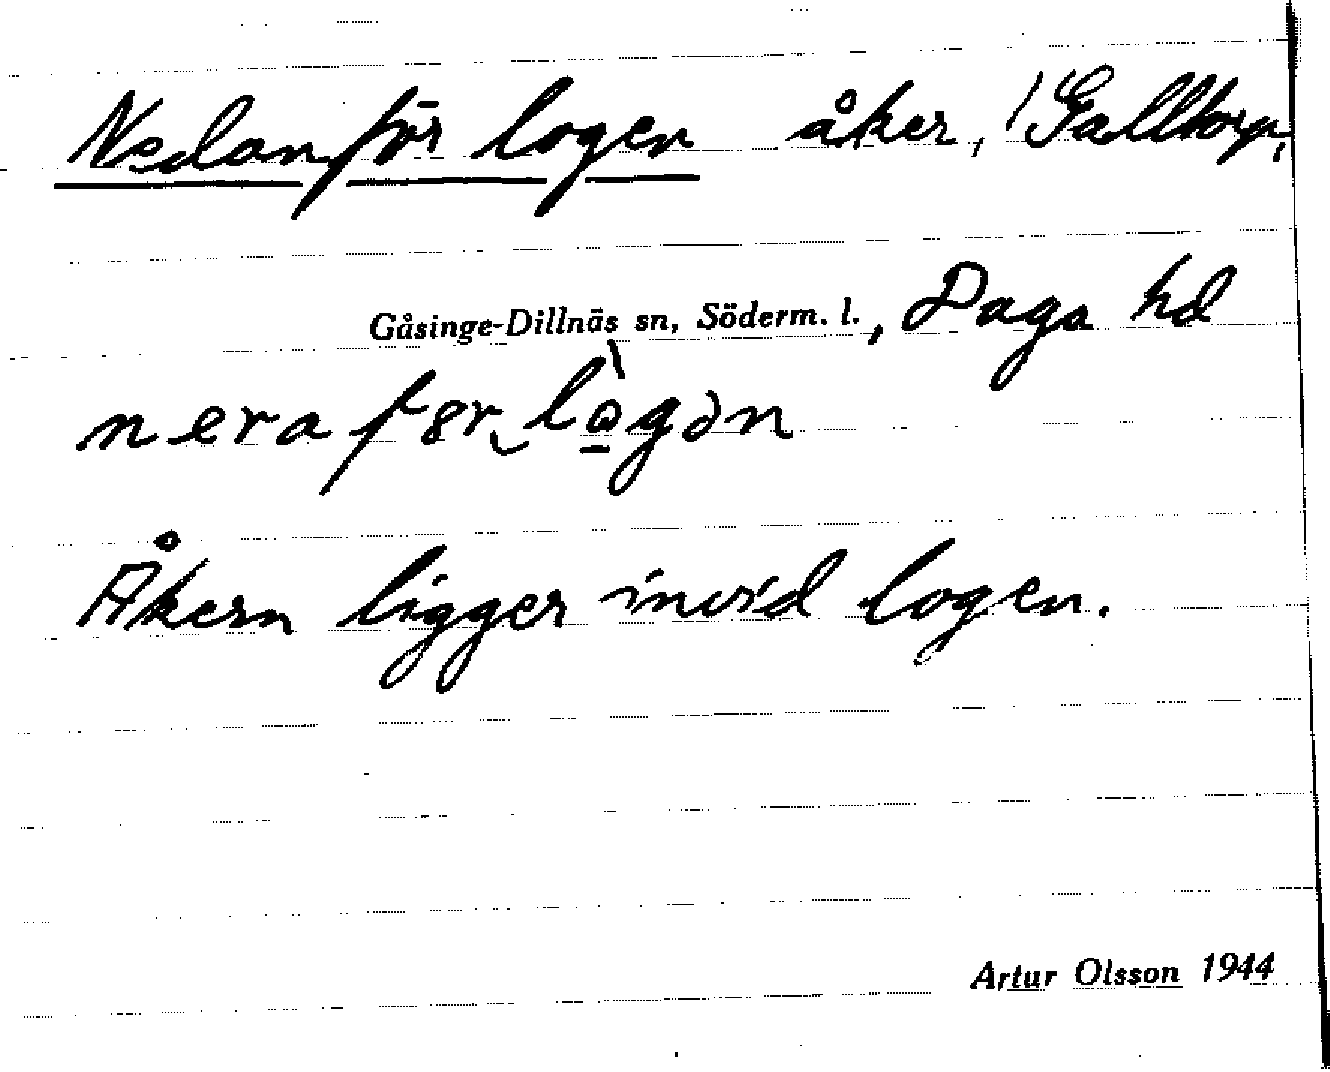 Nedanför logen åker, Galltorp,
Gåsinge-Dillnäs sn, Söderm. l., Daga hd
nerafər‿lò̱gən
Åkern ligger invid logen.
Artur Olsson 1944